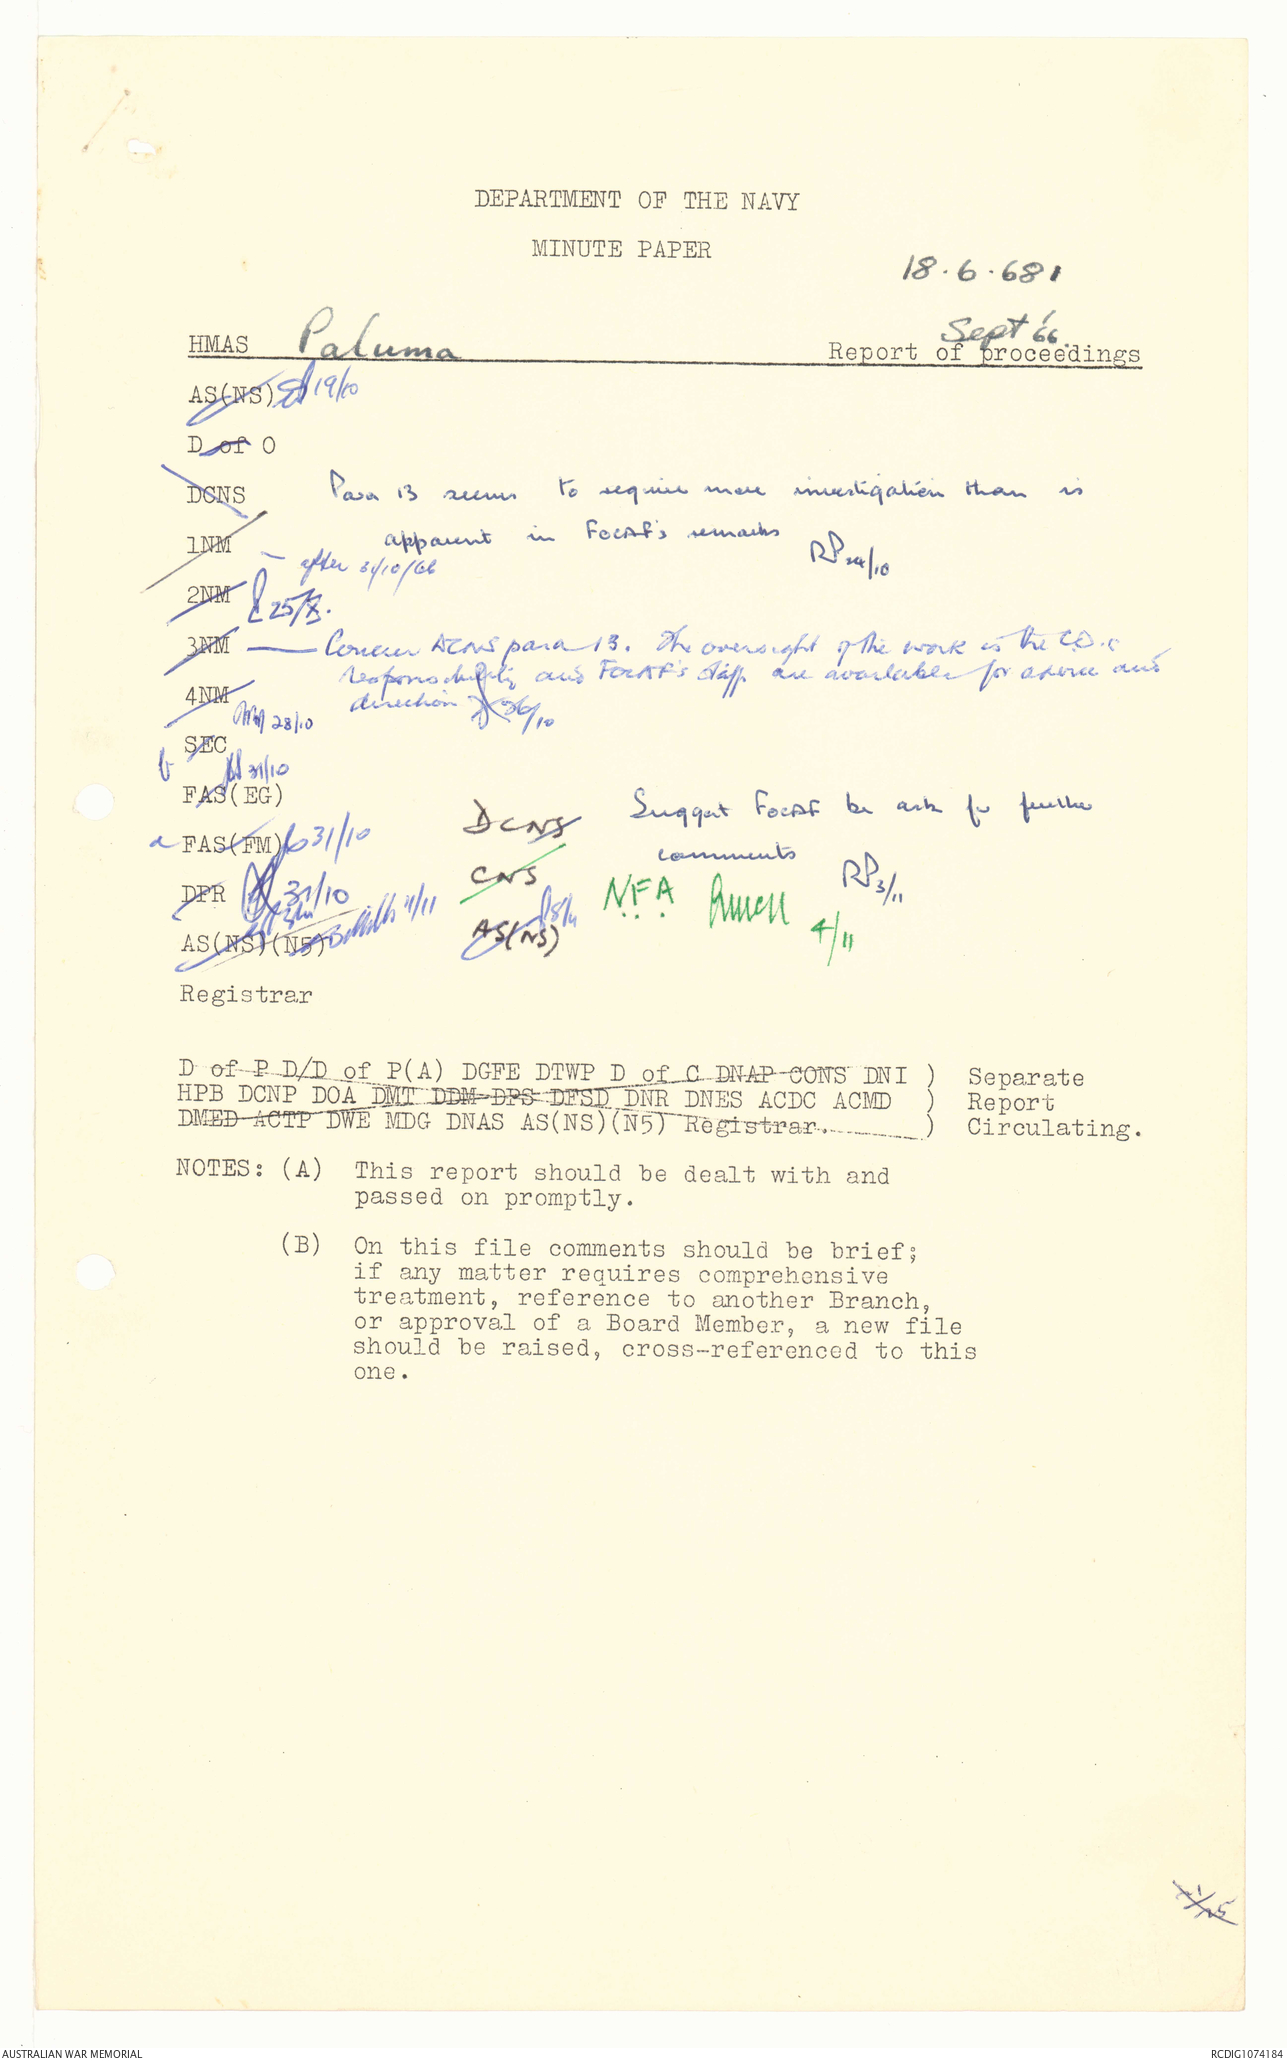 DEPARTMENT OF THE NAVY
MINUTE PAPER
18.6.681
Sept '66.
HMAS Paluma Report of proceedings
AS(NS) 19/10
D of O
DCNS Para 13 seems to require more investigation than is
apparent in FOCAF's remarks RP 24/10
1NM
after 31/10/66
2NM 25/X.
3NM — Concur DCNS para 13. The oversight of the work is the C.O.'s
responsibility and FOCAF's staff are available for advice and
direction 26/10
4NM
28/10
SEC
b 31/10
FAS(EG)
DCNS Suggest FOCAF be ask for further
comments RP 3/11
a FAS(FM) 31/10
CNS N.F.A 4/11
DPR 31/10
11/11
AS(NS)(N5) AS(NS) 8/11
Registrar
D of P D/D of P(A) DGFE DTWP D of C DNAP CONS DNI ) Separate
HPB DCNP DOA DMT DDM DPS DFSD DNR DNES ACDC ACMD ) Report
DMED ACTP DWE MDG DNAS AS(NS)(N5) Registrar. ) Circulating.
NOTES: (A) This report should be dealt with and
passed on promptly.
(B) On this file comments should be brief;
if any matter requires comprehensive
treatment, reference to another Branch,
or approval of a Board Member, a new file
should be raised, cross-referenced to this
one.
AUSTRALIAN WAR MEMORIAL
RCDIG1074184